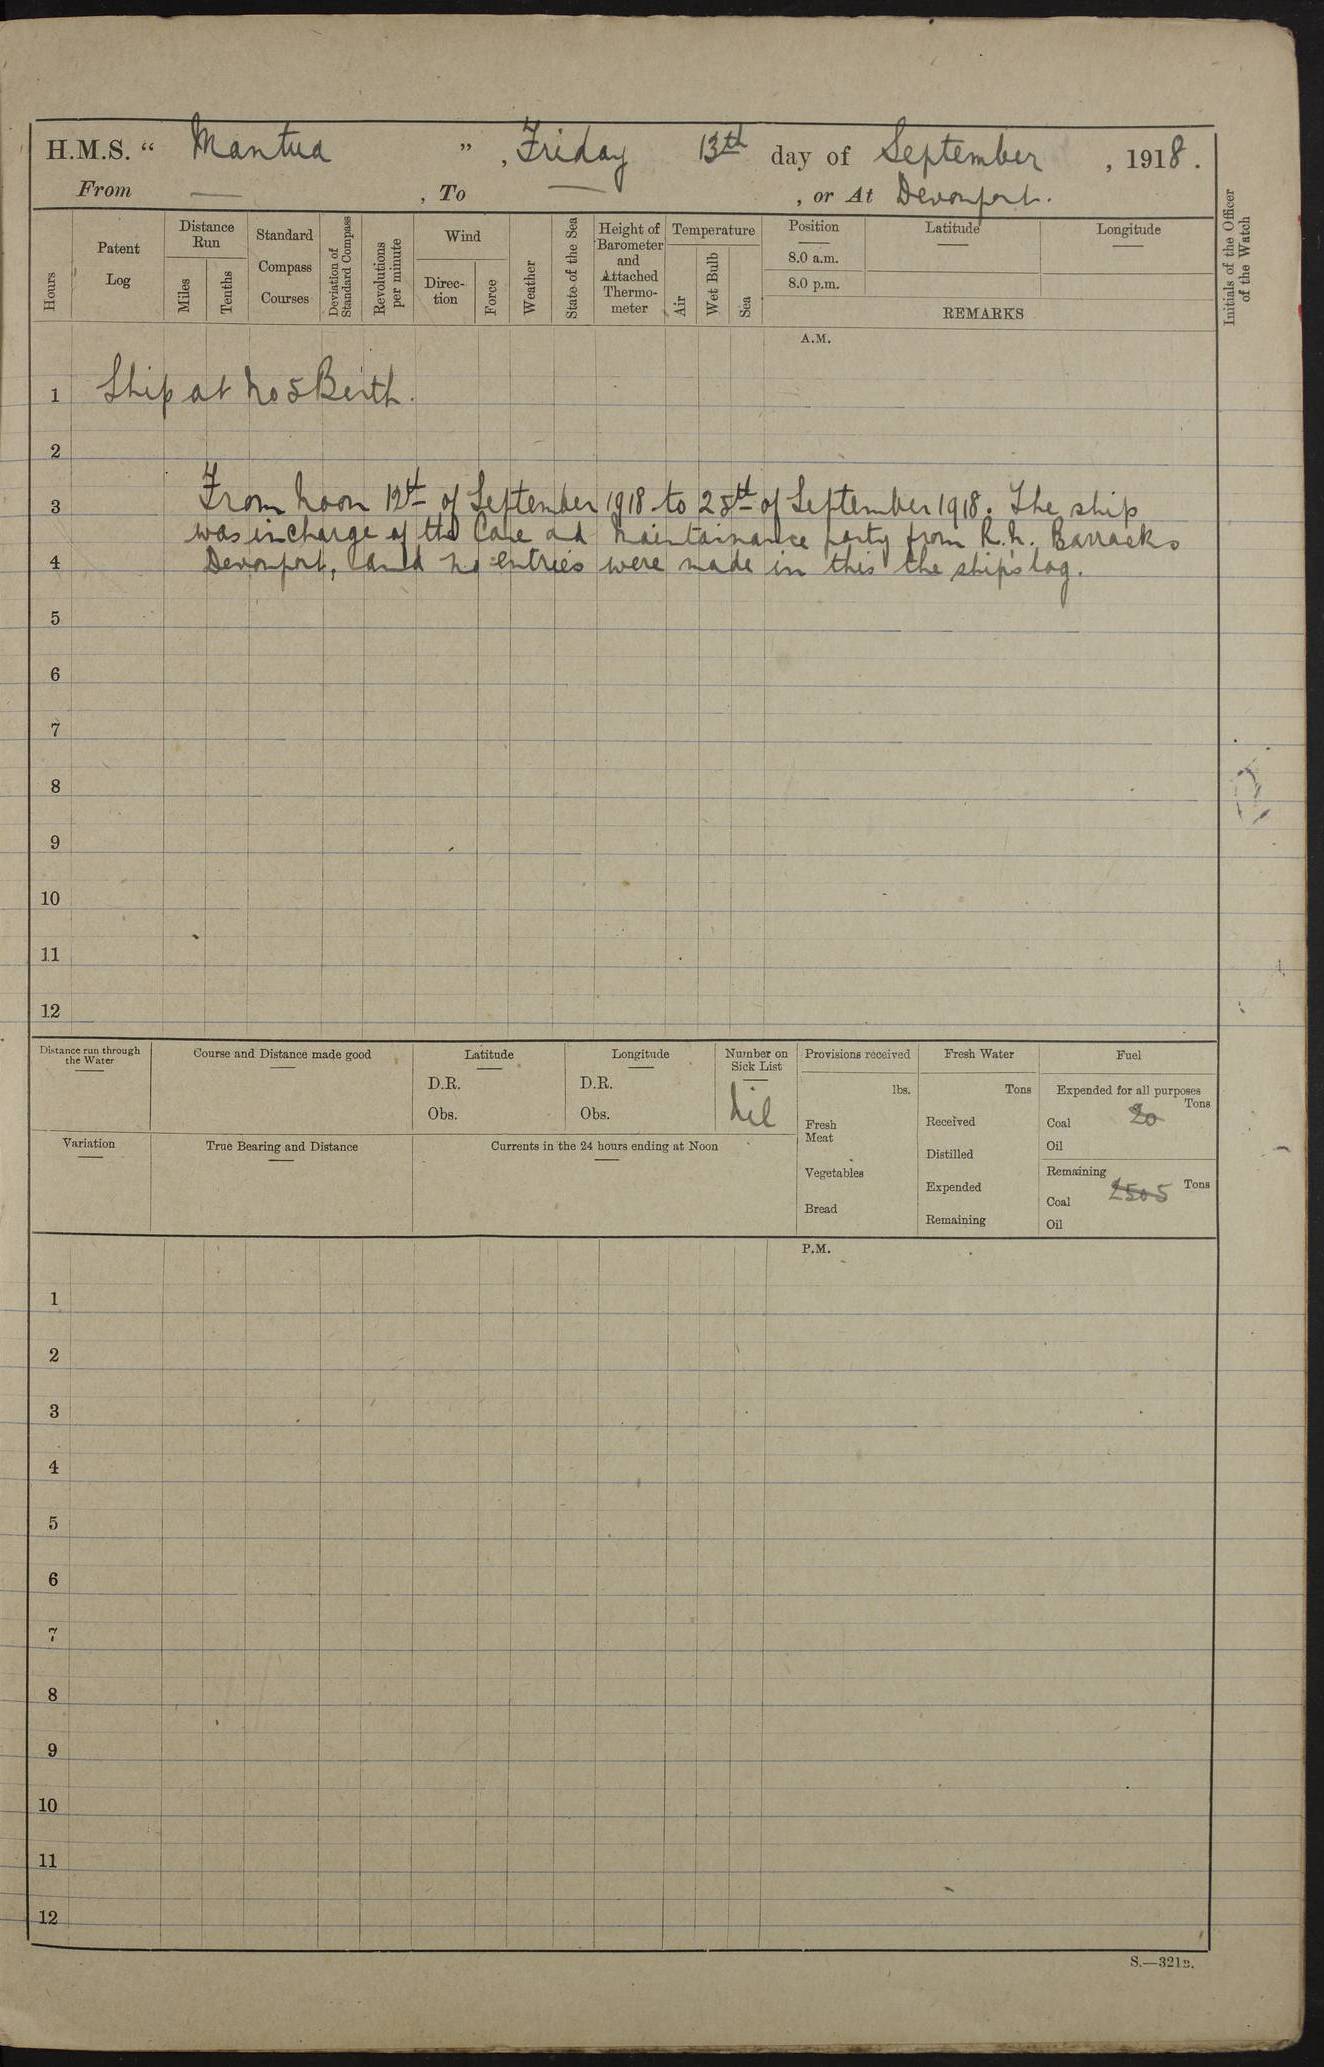 H.M.S. “ Mantua ” , Friday 13th day of September , 1918.
From — , To — , or At Devonport.
Hours
Patent Log
Distance Run
Miles
Tenths
Standard Compass Courses
Deviation of Standard Compass
Revolutions per minute
Wind
Direc-tion
Force
Weather
State of the Sea
Height of Barometer and Attached Thermo-meter
Temperature
Air
Wet Bulb
Sea
Position
8.0 a.m.
8.0 p.m.
Latitude
Longitude
REMARKS
Initials of the Officer of the Watch
A.M.
1 Ship at No 5 Berth.
2
3 From Noon 12th of September 1918 to 28th of September 1918. The ship
was in charge of the Care and Maintainance party from R.N. Barracks
4 Devonport, and no entries were made in this the ship's log.
5
6
7
8
9
10
11
12
Distance run through the Water
Course and Distance made good
Latitude
D.R.
Obs.
Longitude
D.R.
Obs.
Number on Sick List
Nil
Provisions received
lbs.
Fresh Meat
Vegetables
Bread
Fresh Water
Tons
Received
Distilled
Expended
Remaining
Fuel
Expended for all purposes
Tons
Coal 20
Oil
Remaining
Tons
Coal 2505
Oil
Variation
True Bearing and Distance
Currents in the 24 hours ending at Noon
P.M.
1
2
3
4
5
6
7
8
9
10
11
12
S.—321B.